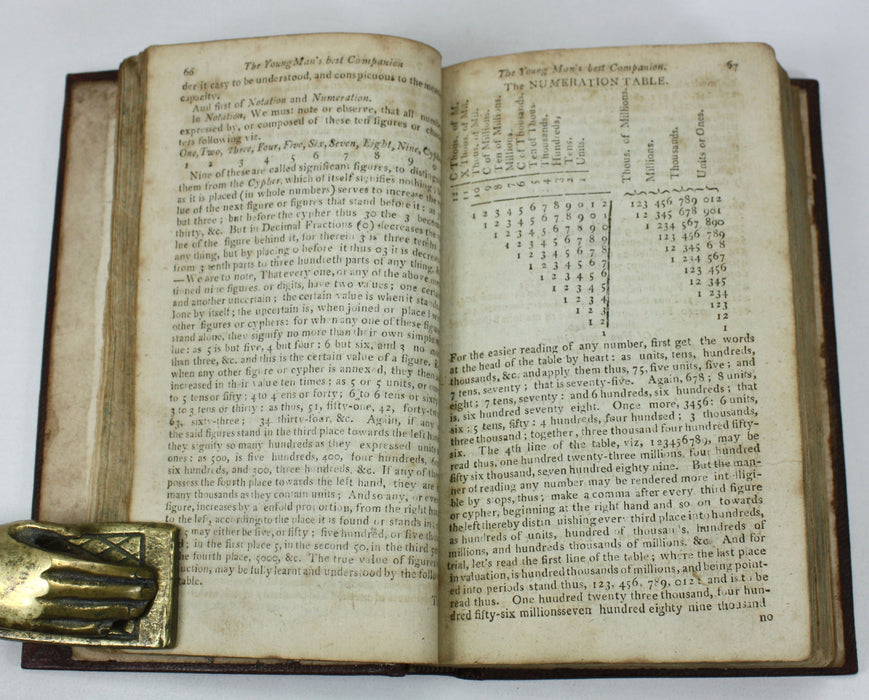 66 The Young Man's best Companion
der it easy to be understood, and conspicuous to the meanest
capacity.
And first of Notation and Numeration.
In Notation, We must note or observe, that all
expressed by, or composed of these ten figures or
ters following viz.
One, Two, Three, Four, Five, Six, Seven, Eight, Nine,
1 2 3 4 5 6 7 8 9
Nine of these are called significant figures, to
them from the Cypher, which of itself signifies nothing,
as it is placed (in whole numbers) serves to increase the
lue of the next figure or figures that stand before it; as
but three; but before the cypher thus 30 the 3
thirty, &c. But in Decimal Fractions (0) decreases the
lue of the figure behind it, for therein 3 is three tenths
any thing, but by placing 0 before it thus 03 it is
from 3 tenth parts to three hundreth parts of any thing,
—We are to note, That every one, or any of the above
tioned nine figures, or digits, have two values; one
and another uncertain; the certain value is when it
lone by itself; the uncertain is, when joined or place
other figures or cyphers: for when any one of these
stand alone, they signify no more than their own simple
lue: as 5 is but five, 4 but four: 6 but six, and 3 no
than three, &c. and this is the certain value of a figure.
when any other figure or cypher is annexed, they
increased in their value ten times; as 5 or 5 units, or
to 5 tens or fifty; 4 to 4 ens or forty; 6 to 6 tens or
3 to 3 tens or thirty: as thus, 51, fifty-one, 42,
63, sixty-three; 34 thirty-four, &c. Again, if any
the said figures stand in the third place towards the left
they signify so many hundreds as they expressed
ones: as 500, is five hundreds, 400, four hundreds,
six hundreds, and 300, three hundreds, &c. If any of
possess the fourth place towards the left hand, they are
many thousands as they contain units; And so any,
figure, increases by a enfold proportion, from the right
to the left, according to the place it is found or stands in
5 may either be five, or fifty; five hundred, or five
in the first place 5, in the second 50, in the third
the fourth place, 5000, &c. The true value of
may be fully learnt and understood by the
table.
The Young Man's best Companion. 67
The NUMERATION TABLE.
12 C Thous. of Mi.
11 X Thous. of Mil.
10 Thou. of Mil.
9 C of Millions.
8 Ten of Millions.
7 Millions.
6 C of Thousands.
5 Ten of Thous.
4 Thousands.
3 Hundreds,
2 Tens.
1 Units.
Thous. of Millions.
Millions.
Thousands.
Units or Ones.
1 2 3 4 5 6 7 8 9 0 1 2 123 456 789 012
1 2 3 4 5 6 7 8 9 0 1 12 345 678 901
1 2 3 4 5 6 7 8 9 0 1 234 567 890
1 2 3 4 5 6 7 8 9 123 456 789
1 2 3 4 5 6 7 8 12 345 6 8
1 2 3 4 5 6 7 1 234 567
1 2 3 4 5 6 123 456
1 2 3 4 5 12 345
1 2 3 4 1 234
1 2 3 123
1 2 12
1 1
For the easier reading of any number, first get the words
at the head of the table by heart: as units, tens, hundreds,
thousands, &c. and apply them thus, 75, five units, five; and
7 tens, seventy; that is seventy-five. Again, 678; 8 units,
eight; 7 tens, seventy: and 6 hundreds, six hundreds; that
is, six hundred seventy eight. Once more, 3456: 6 units,
six: 5 tens, fifty: 4 hundreds, four hundred; 3 thousands,
three thousand; together, three thousand four hundred fifty-
six. The 4th line of the table, viz, 123456789, may be
read thus, one hundred twenty-three millions, four hundred
fifty six thousand, seven hundred eighty nine. But the man-
ner of reading any number may be rendered more int lligi-
ble by s ops, thus; make a comma after every third figure
or cypher, beginning at the right hand and so on towards
the left thereby distin uishing ever third place into hundreds,
as hundreds of units, hundred of thousands, hundreds of
millions, and hundreds thousands of millions. &c. And for
trial, let's read the first line of the table; where the last place
in valuation, is hundred thousands of millions, and being point-
ed into periods stand thus, 123, 456, 789, 012: and is t be
read thus. One hundred twenty three thousand, four hun-
dred fifty-six millions seven hundred eighty nine thousand
no